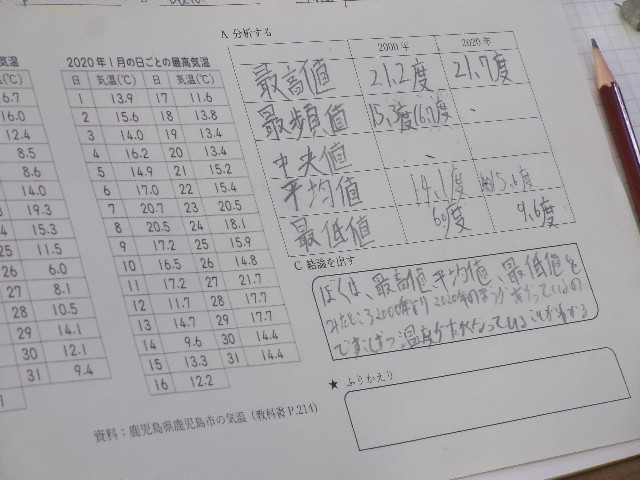 気温
(℃)
6.7
16.0
12.4
8.5
8.6
14.0
19.3
15.3
25 11.5
26 6.0
27 8.1
28 10.5
29 14.1
30 12.1
31 9.4
2020年1月の日ごとの最高気温
日 気温(℃) 日 気温(℃)
1 13.9 17 11.6
2 15.6 18 13.8
3 14.0 19 13.4
4 16.2 20 13.4
5 14.9 21 15.2
6 17.0 22 15.4
7 20.7 23 20.5
8 20.5 24 18.1
9 17.2 25 15.9
10 16.5 26 14.8
11 17.2 27 21.7
12 11.7 28 17.7
13 14.7 29 17.7
14 9.6 30 14.4
15 13.3 31 14.4
16 12.2
資料:鹿児島県鹿児島市の気温(教科書P.214)
A 分析する
2000年 2020年
最高値 21.2度 21.7度
最頻値
中央値
平均値 14.1度 約15.6度
最低値 6.0度 9.6度
C 結論を出す
ぼくは、最高値、平均値、最低値を
みたところ2000年より2020年のほうが
温度が高くなっていることが分かる
★ ふりかえり